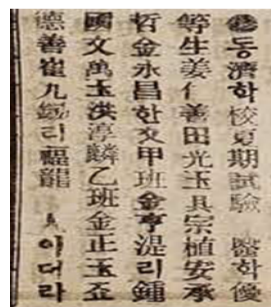 동濟학校夏期試驗 醫학優
等生姜仁善田光玉具宗植安承
哲金永昌한文甲班金亨湜리鍾
國文萬玉洪淳麟乙班金正玉
德善崔九 리福龍 人이더라